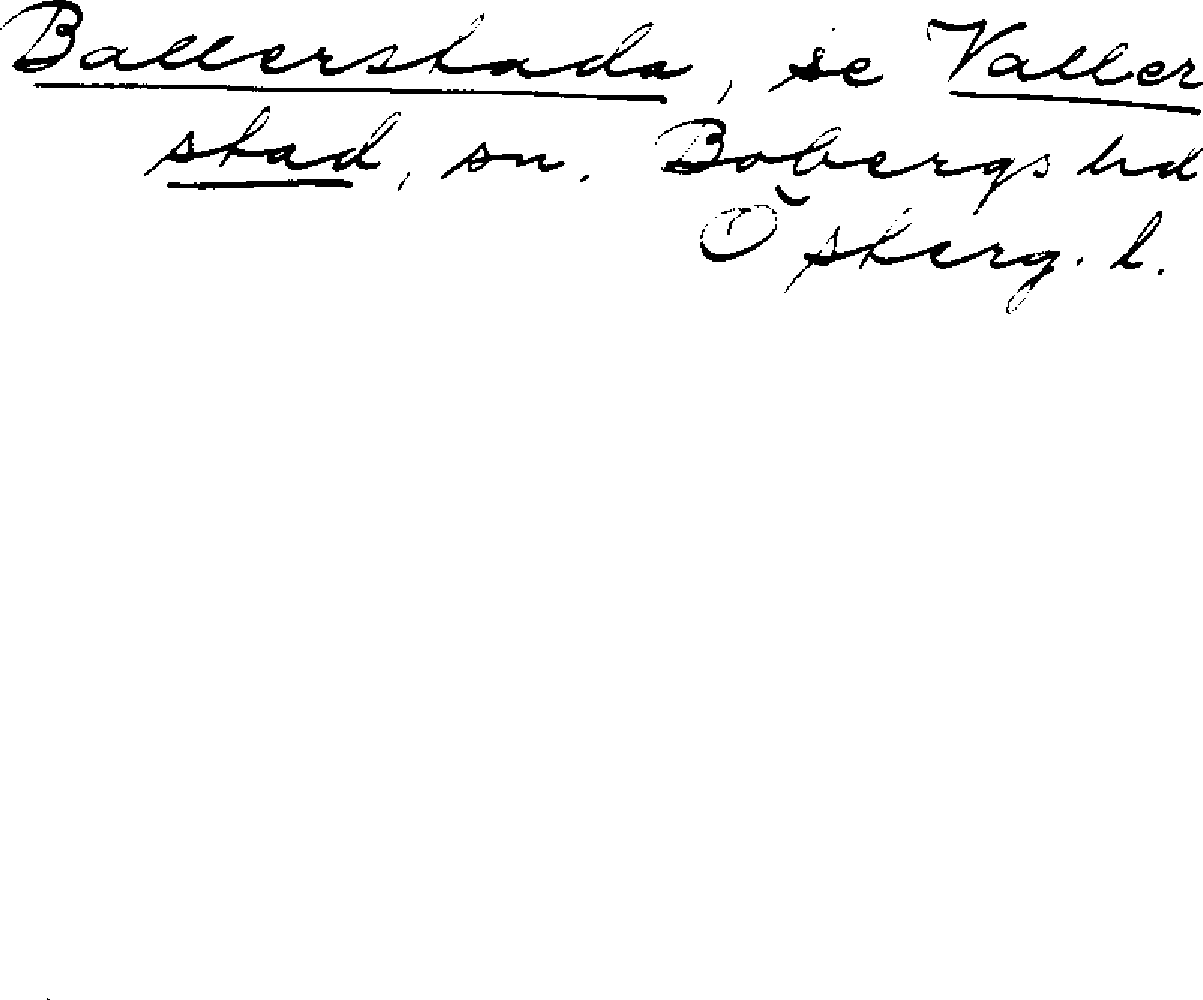 Ballerstada, se Valler
stad, sn. Bobergs hd
Österg. l.